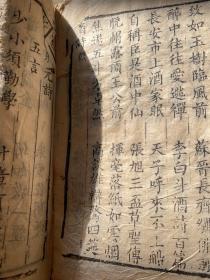 如玉樹臨風前 蘇晉長齋繡
醉中往往愛逃禪 李白斗酒詩百篇
長安市上酒家眠 天子呼來不上船
自稱臣是酒中仙 張旭三盃草聖傳
脫帽露頂王公前 揮毫落紙如雲烟
焦遂五斗 卓然 高 四筵
元詩
五言
少小須勤學